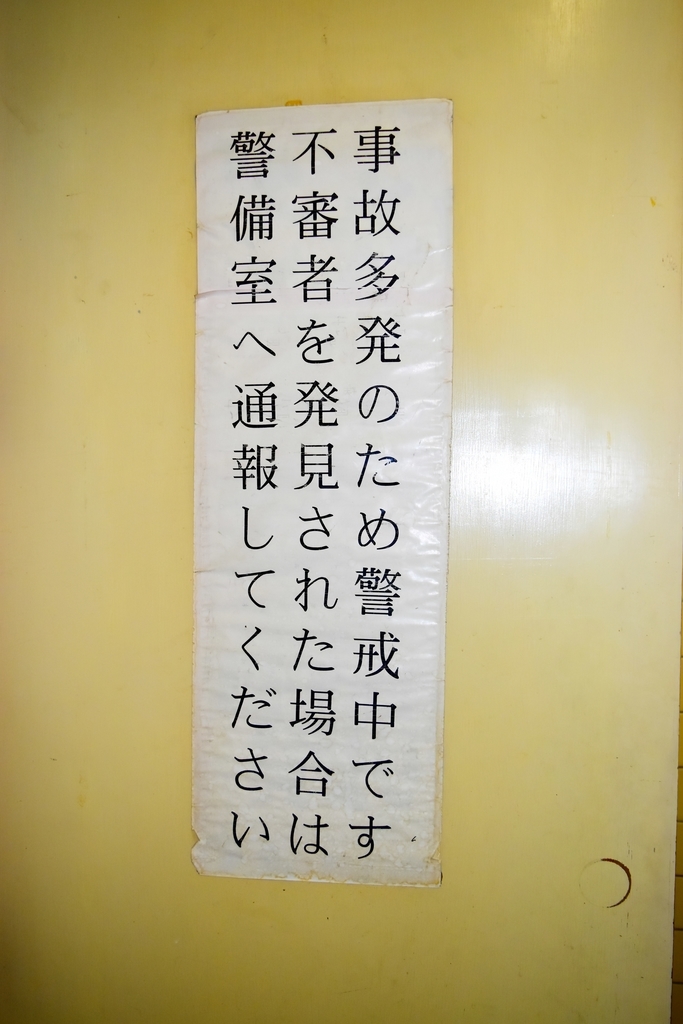 事故多発のため警戒中です
不審者を発見された場合は
警備室へ通報してください